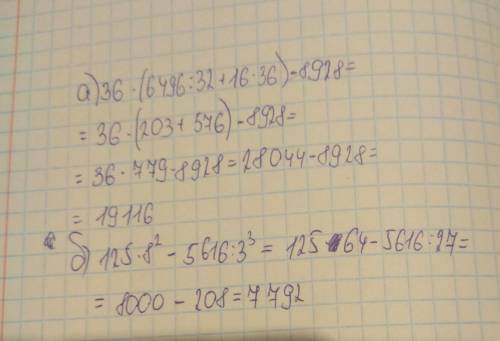 а) 36 · (6496:32 + 16·36) - 8928 =
= 36 · (203 + 576) - 8928 =
= 36 · 779 - 8928 = 28044 - 8928 =
= 19116
б) 125·8² - 5616:3³ = 125 · 64 - 5616:27 =
= 8000 - 208 = 7792